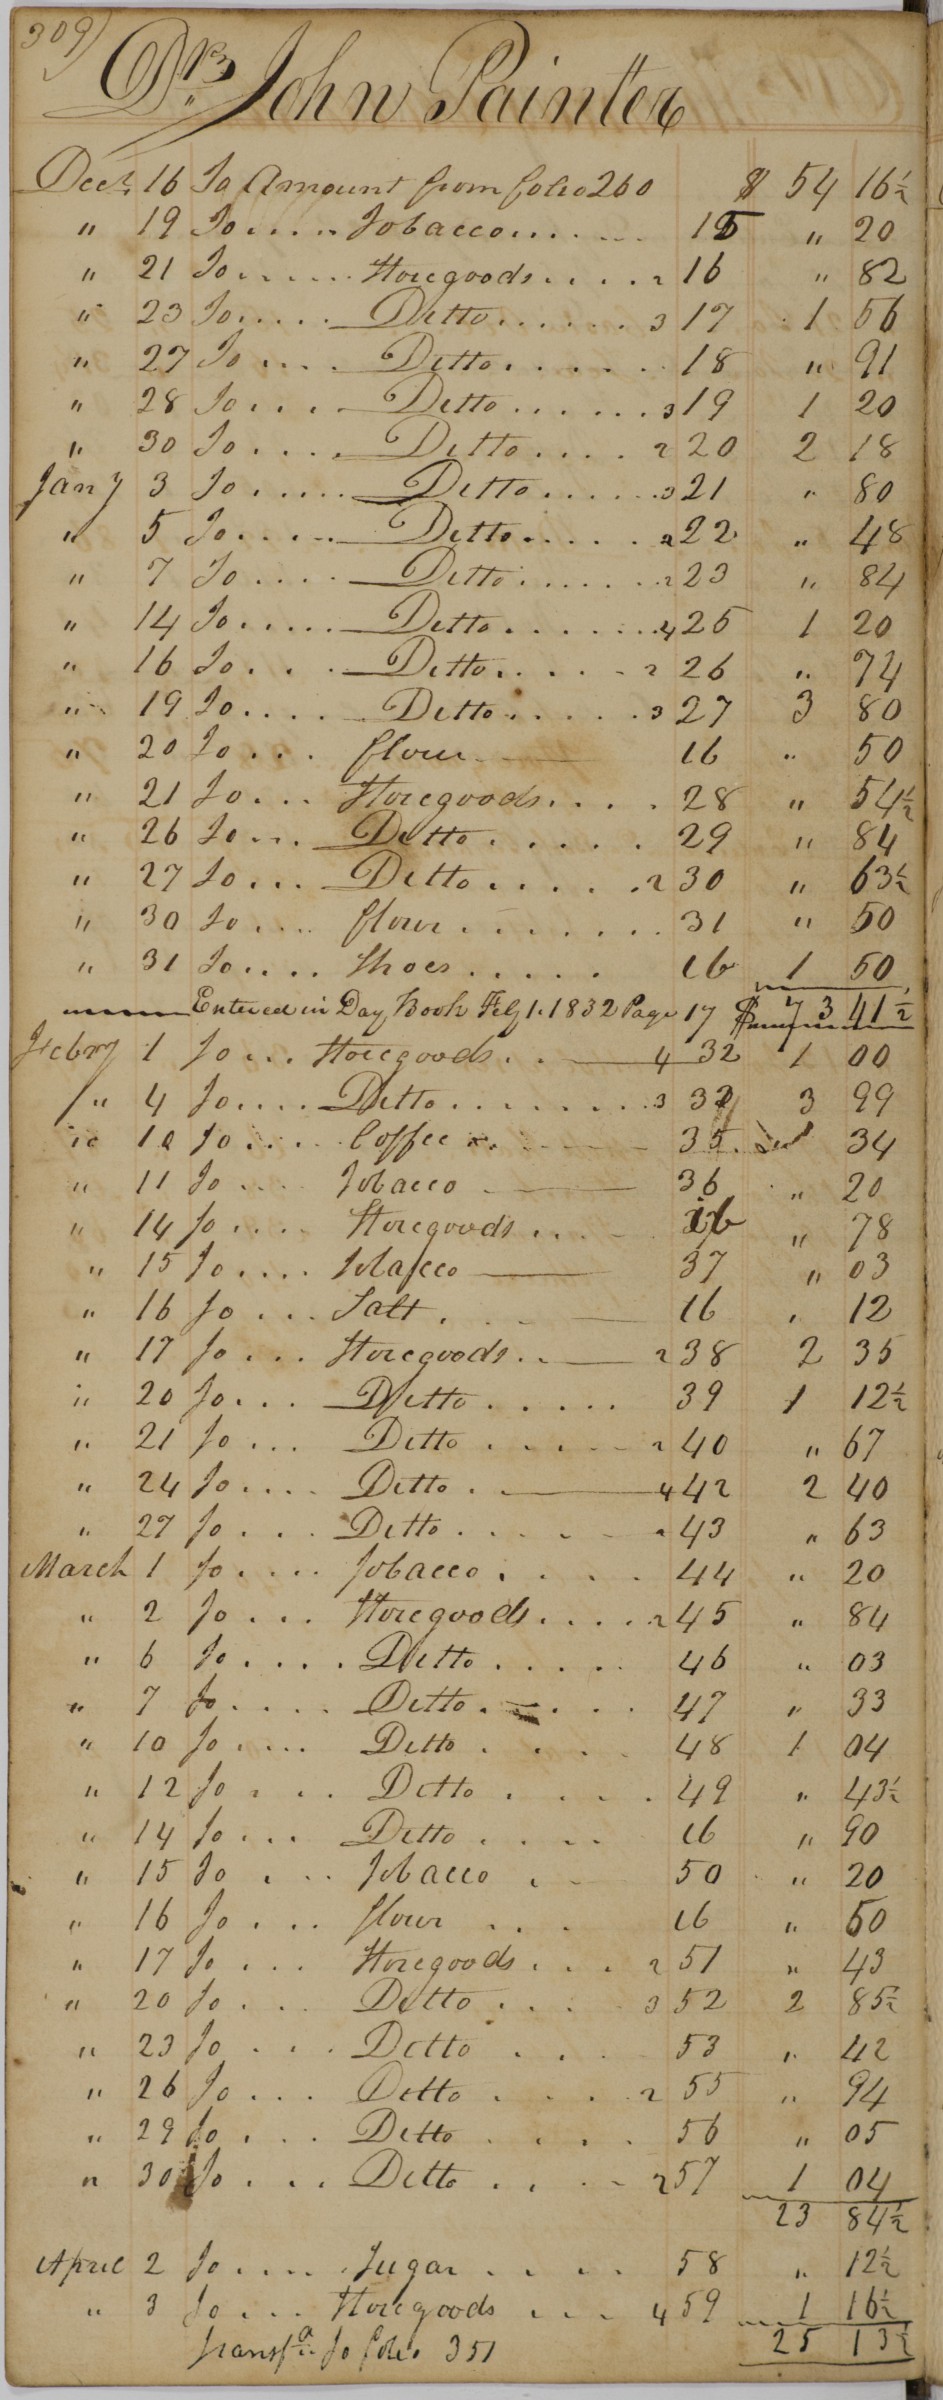 309)
Dr. John Painter
Decr. 16 To Amount from folio 260 $ 54 16½
" 19 To ..... Tobacco ...... 15 " 20
" 21 To ...... Storegoods ..... 2 16 " 82
" 23 To ..... Ditto ...... 3 17 1 56
" 27 To .... Ditto ...... 18 " 91
" 28 To .... Ditto ...... 3 19 1 20
" 30 To .... Ditto .... 2 20 2 18
Jany 3 To ..... Ditto ..... 3 21 " 80
" 5 To ..... Ditto ..... 2 22 " 48
" 7 To .... Ditto ...... 2 23 " 84
" 14 To ..... Ditto ...... 4 25 1 20
" 16 To ... Ditto ..... 2 26 " 74
" 19 To .... Ditto ..... 3 27 3 80
" 20 To ... flour 16 " 50
" 21 To ... Storegoods .... 28 " 54½
" 26 To ... Ditto ..... 29 " 84
" 27 To ... Ditto ..... 2 30 " 63½
" 30 To .... flour ....... 31 " 50
" 31 To .... Shoes ..... 16 1 50
Entered in Day Book Feby 1. 1832 Page 17 $ 73 41½
Febry 1 To ... Storegoods .. 4 32 1 00
" 4 To .... Ditto ....... 3 33 3 99
" 10 To .... Coffee 35 34
" 11 To .... Tobacco 36 " 20
" 14 To .... Storegoods ... 16 " 78
" 15 To .... Tobacco 37 " 03
" 16 To ... Salt . 16 " 12
" 17 To ... Storegoods .. 2 38 2 35
" 20 To ... Ditto ..... 39 1 12½
" 21 To ... Ditto ..... 2 40 " 67
" 24 To .... Ditto . 4 42 2 40
" 27 To ... Ditto ..... 2 43 " 63
March 1 To .... Tobacco ..... 44 " 20
" 2 To ... Storegoods .... 2 45 " 84
" 6 To ..... Ditto ..... 46 " 03
" 7 To .... Ditto ..... 47 " 33
" 10 To .... Ditto .... 48 1 04
" 12 To ... Ditto .... 49 " 43½
" 14 To ... Ditto .... 16 " 90
" 15 To ... Tobacco . 50 " 20
" 16 To ... flour ... 16 " 50
" 17 To ... Storegoods ... 2 51 " 43
" 20 To ... Ditto .... 3 52 2 85½
" 23 To ... Ditto ... 53 " 42
" 26 To ... Ditto .... 2 55 " 94
" 29 To ... Ditto .... 56 " 05
" 30 To ... Ditto .... 2 57 1 04
23 84½
April 2 To .... Sugar .... 58 " 12½
" 3 To ... Storegoods ... 4 59 1 16½
Transfd. to folio 351 25 13½